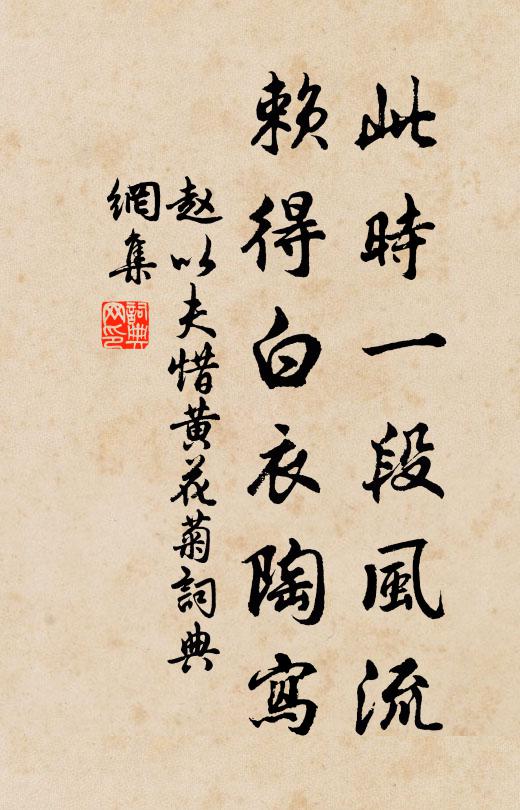 此時一段風流
賴得白衣陶寫
赵以夫惜黄花菊詞典
網集
詞典
网印